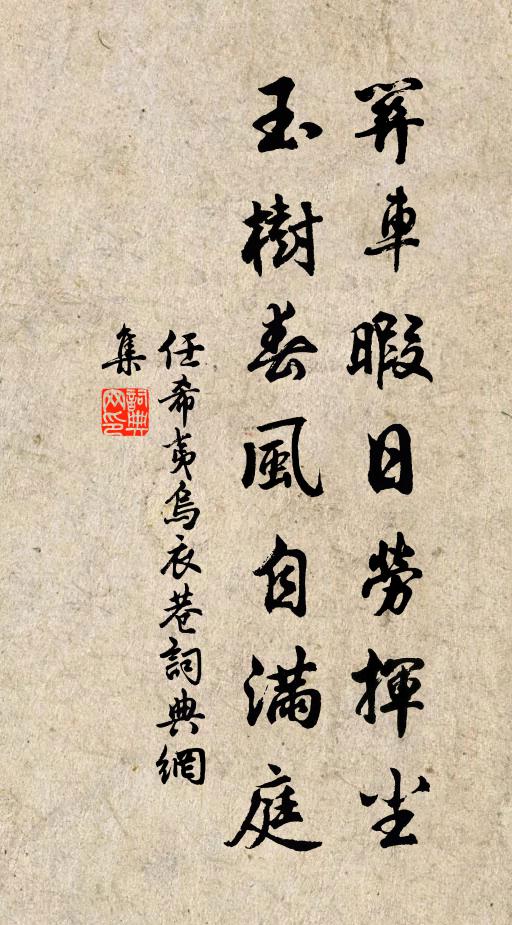 車暇日勞揮尘
玉樹春風自滿庭
任希夷烏衣巷詞典網
集
詞典網印